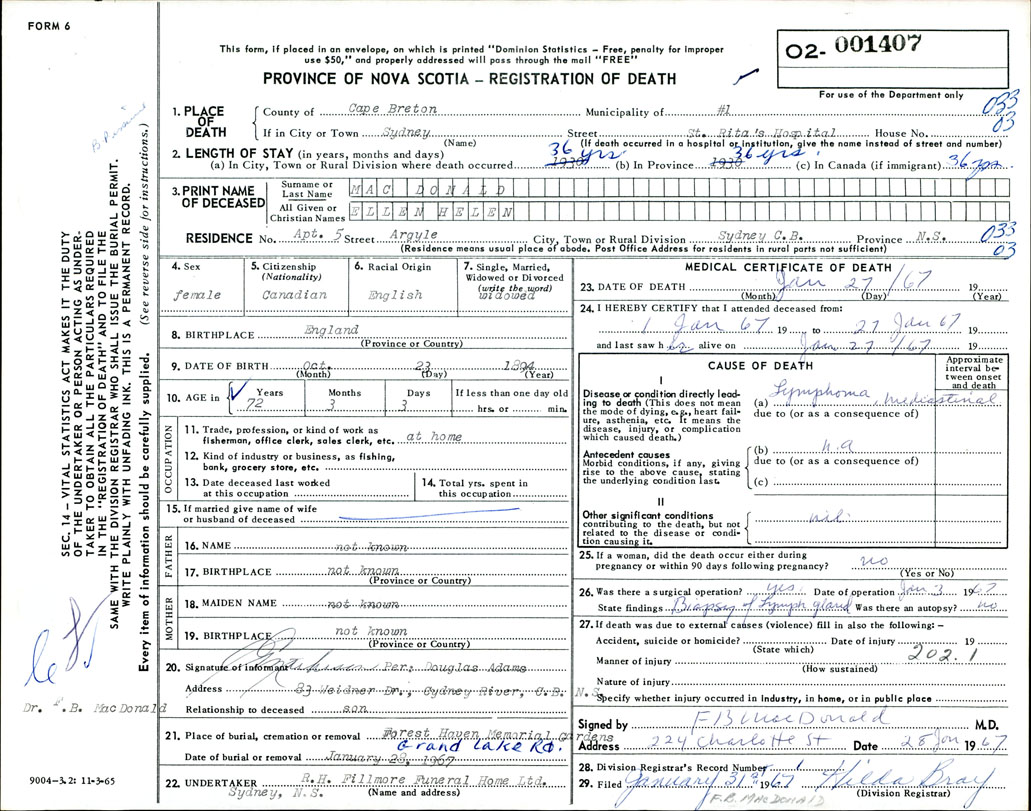 FORM 6
This form, if placed in an envelope, on which is printed "Dominion Statistics – Free, penalty for improper
use $50," and properly addressed will pass through the mail "FREE"
PROVINCE OF NOVA SCOTIA – REGISTRATION OF DEATH
02- 001407
For use of the Department only
1. PLACE OF DEATH
County of Cape Breton Municipality of #1 033
If in City or Town Sydney Street St. Rita's Hospital House No. 03
(Name) (If death occurred in a hospital or institution, give the name instead of street and number)
2. LENGTH OF STAY (in years, months and days) 36 yrs 36 yrs.
(a) In City, Town or Rural Division where death occurred 1930 (b) In Province 1930 (c) In Canada (if immigrant) 36 yrs
3. PRINT NAME OF DECEASED
Surname or Last Name MAC DONALD
All Given or Christian Names ELLEN HELEN
RESIDENCE No. Apt. 5 Street Argyle City, Town or Rural Division Sydney C.B. Province N.S. 033
(Residence means usual place of abode. Post Office Address for residents in rural parts not sufficient) 03
4. Sex
female
5. Citizenship
(Nationality)
Canadian
6. Racial Origin
English
7. Single, Married,
Widowed or Divorced
(write the word)
widowed
8. BIRTHPLACE England
(Province or Country)
9. DATE OF BIRTH Oct. 23 1894
(Month) (Day) (Year)
10. AGE in Years Months Days If less than one day old
72 3 3 hrs. or min.
OCCUPATION
11. Trade, profession, or kind of work as
fisherman, office clerk, sales clerk, etc. at home
12. Kind of industry or business, as fishing,
bank, grocery store, etc.
13. Date deceased last worked
at this occupation
14. Total yrs. spent in
this occupation
15. If married give name of wife
or husband of deceased
FATHER
16. NAME not known
17. BIRTHPLACE not known
(Province or Country)
MOTHER
18. MAIDEN NAME not known
19. BIRTHPLACE not known
(Province or Country)
20. Signature of informant Per; Douglas Adams
Address 83 Weidner Dr., Sydney River, C.B. N.S.
Relationship to deceased son
21. Place of burial, cremation or removal Forest Haven Memorial Gardens
Grand Lake Rd.
Date of burial or removal January 28, 1967
22. UNDERTAKER R.H. Fillmore Funeral Home Ltd.
Sydney, N.S. (Name and address)
MEDICAL CERTIFICATE OF DEATH
23. DATE OF DEATH Jan 27 /67 19
(Month) (Day) (Year)
24. I HEREBY CERTIFY that I attended deceased from:
1 Jan 67 19 to 27 Jan 67 19
and last saw her alive on Jan 27 /67 19
CAUSE OF DEATH
Approximate
interval be-
tween onset
and death
I
Disease or condition directly lead-
ing to death (This does not mean
the mode of dying, e.g., heart fail-
ure, asthenia, etc. It means the
disease, injury, or complication
which caused death.)
(a) Lymphoma, Mediastinal
due to (or as a consequence of)
Antecedent causes
Morbid conditions, if any, giving
rise to the above cause, stating
the underlying condition last.
(b) n.a
due to (or as a consequence of)
(c)
II
Other significant conditions
contributing to the death, but not
related to the disease or condi-
tion causing it.
nil.
25. If a woman, did the death occur either during
pregnancy or within 90 days following pregnancy? no
(Yes or No)
26. Was there a surgical operation? yes. Date of operation Jan 3 1967
State findings Biopsy of lymph gland Was there an autopsy? no
27. If death was due to external causes (violence) fill in also the following: –
Accident, suicide or homicide? Date of injury 19
(State which) 202.1
Manner of injury
(How sustained)
Nature of injury
Specify whether injury occurred in industry, in home, or in public place
Signed by F B MacDonald M.D.
Address 224 Charlotte St Date 28 Jan 1967
28. Division Registrar's Record Number
29. Filed January 31st 1967 Hilda Bray
(Division Registrar)
F.B. MACDONALD
SEC. 14 – VITAL STATISTICS ACT MAKES IT THE DUTY
OF THE UNDERTAKER OR PERSON ACTING AS UNDER-
TAKER TO OBTAIN ALL THE PARTICULARS REQUIRED
IN THE "REGISTRATION OF DEATH" AND TO FILE THE
SAME WITH THE DIVISION REGISTRAR WHO SHALL ISSUE THE BURIAL PERMIT.
WRITE PLAINLY WITH UNFADING INK. THIS IS A PERMANENT RECORD.
Every item of information should be carefully supplied. (See reverse side for instructions.)
Dr. F.B. MacDonald
9004-3.2: 11-3-65